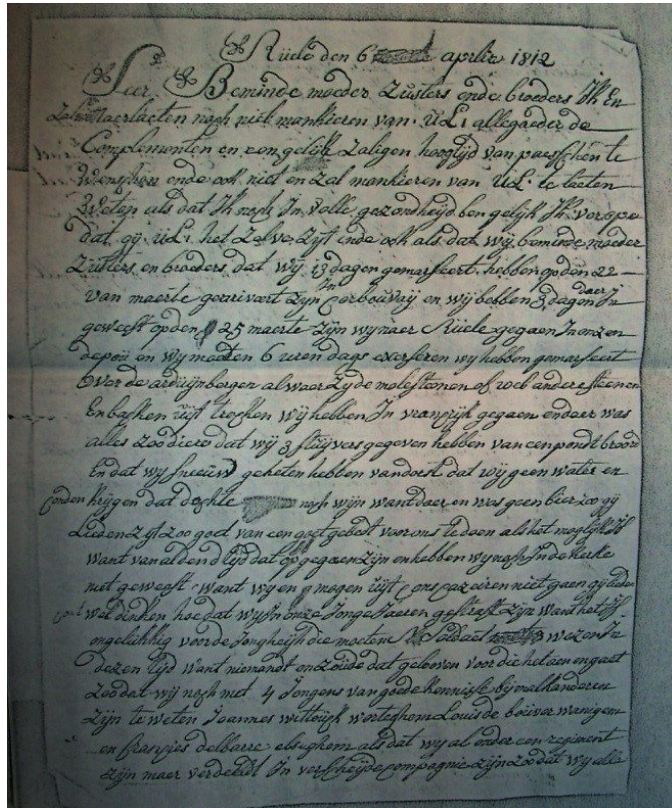 Rüele den 6 aprilis 1812
Seer Beminde moeder Züsters ende broeders Ik En
Zal naerlaeten noch niet mankieren van ULi allegaeder de
Complementen en een gelijk Zaligen hoogtijd van paesschen te
Wenschen ende ook niet en Zal mankieren van ULi te laeten
Weten als dat Ik noch In Volle gezondheijd ben gelijk Ik verope
dat gij ULi het Zelve Zijt ende ook als dat wij beminde moeder
Züsters en broeders dat wij 13 dagen gemarseert hebben op den 22
van maerte gerrivert Zijn In en wij hebben 3 dagen daer In
geweest op den 25 maerte Zijn wij naer Rüele gegaen In onzen
depoij en wij moeten 6 ueren daegs exerseren wij hebben gemarseert
Over de ardüijnbergen alwaer Zij de molestenen of wel andere steenen
En uijt trecken wij hebben In vranrijk gegaen en daer was
alles Zoo diere dat wij 3 stüijvers gegeven hebben van een pondt broodt
En dat wij sneeuw geheten hebben van dorst dat wij geen water en
Conden krijgen dat noch wijn want daer en was geen bier Zoo gij
Lieden Zijt Zoo goet van een goet gebedt voor ons te doen als het mogelijk Is
Want van alden tijd dat op gegaen Zijn en hebben wij noch In de kerke
niet geweest want wij en mogen uijt ons niet gaen gij lieden
Cont wel dinken hoe dat wij In onze Jonge Jaeren gestraft Zijn want het Is
ongelükkig voor de Jongheijd die moeten Soldaet wezen In
dezen tijd want niemandt en Zoude dat geloven voor die het aen en gaet
Zoo dat wij noch met 4 Jongens van goede kennisse bij malkanderen
Zijn te weten Joannes worteghem Louis de wanigem
en fransies delbarre elseghem als dat wij al onder een regiment
Zijn maer verdeelt In verscheijde compagnie Zijn Zoo dat wij alle